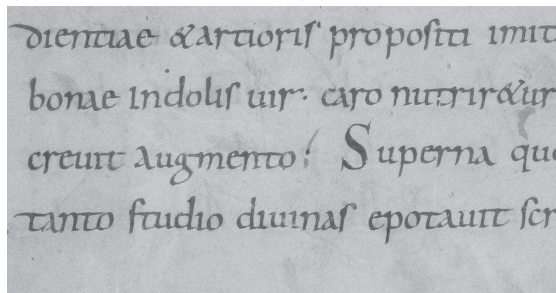 dientiae & artioris propositi imit
bonae indolis uir. caro nutrir&ur
creuit augmento; Superna qu
tanto studio diuinas epotauit scr